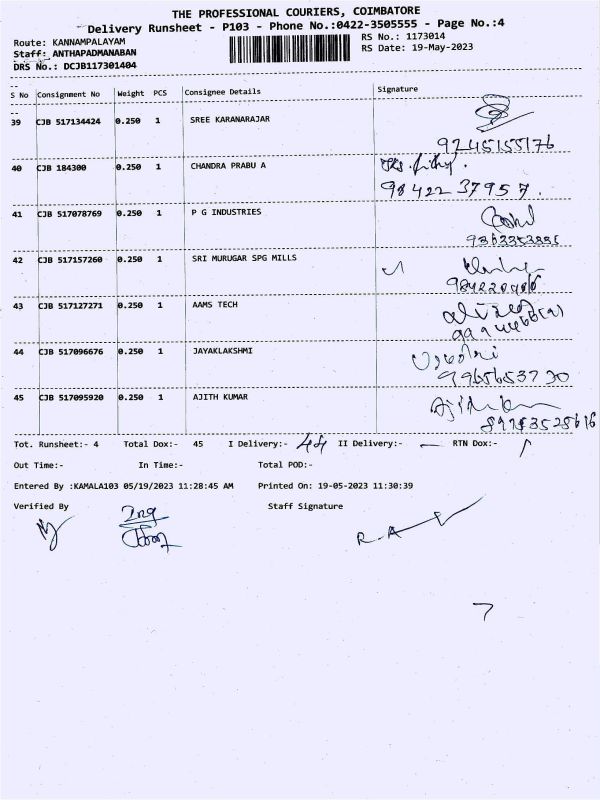 THE PROFESSIONAL COURIERS, COIMBATORE
Delivery Runsheet - P103 - Phone No.:0422-3505555 - Page No.:4
Route: KANNAMPALAYAM
RS No.: 1173014
Staff: ANTHAPADMANABAN
RS Date: 19-May-2023
DRS No.: DCJB117301404
S No Consignment No Weight PCS Consignee Details Signature
39 CJB 517134424 0.250 1 SREE KARANARAJAR
9245155176
40 CJB 184300 0.250 1 CHANDRA PRABU A
98422 37957.
41 CJB 517078769 0.250 1 P G INDUSTRIES
42 CJB 517157260 0.250 1 SRI MURUGAR SPG MILLS
43 CJB 517127271 0.250 1 AAMS TECH
44 CJB 517096676 0.250 1 JAYAKLAKSHMI
9965653730
45 CJB 517095920 0.250 1 AJITH KUMAR
Tot. Runsheet:- 4 Total Dox:- 45 I Delivery:- 44 II Delivery:- — RTN Dox:- 1
Out Time:- In Time:- Total POD:-
Entered By :KAMALA103 05/19/2023 11:28:45 AM Printed On: 19-05-2023 11:30:39
Verified By Staff Signature